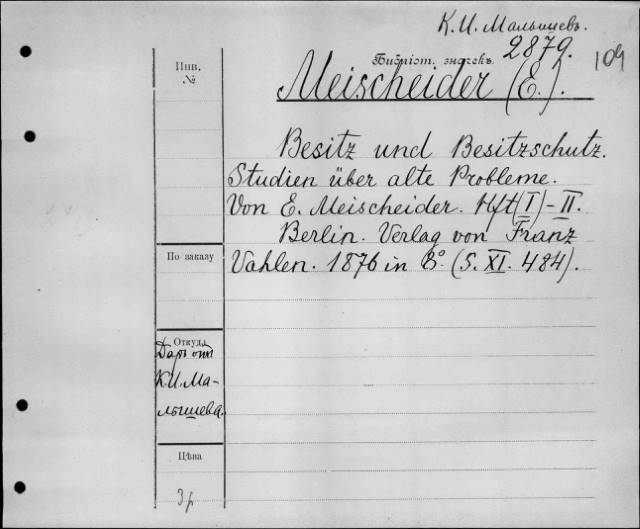 К. И. Малышевъ.
Библіот. значекъ. 2879.
109
Инв. №
Meischeider (E.).
Besitz und Besitzschutz.
Studien über alte Probleme.
Von E. Meischeider. Hft (I) - II.
Berlin. Verlag von Franz
Vahlen. 1876 in 8º. (S. XI. 484).
По заказу
Откуда
Даръ отъ
К. И. Ма-
лышева.
Цѣна
3 р